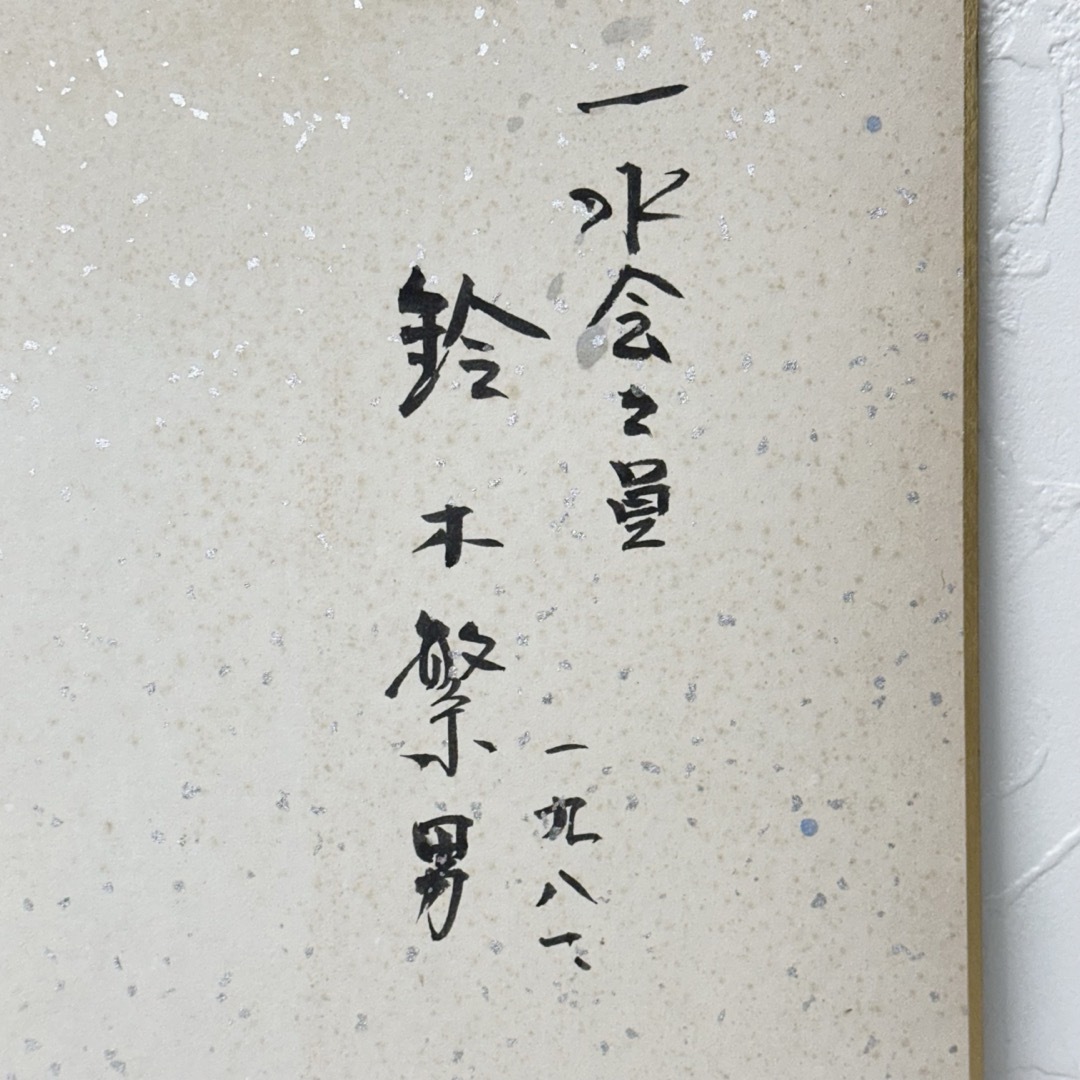 一水会々員
一九八
鈴木繁男